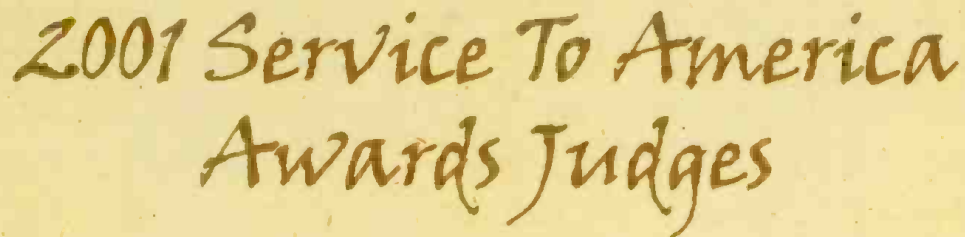 2001 Service To America
Awards Judges